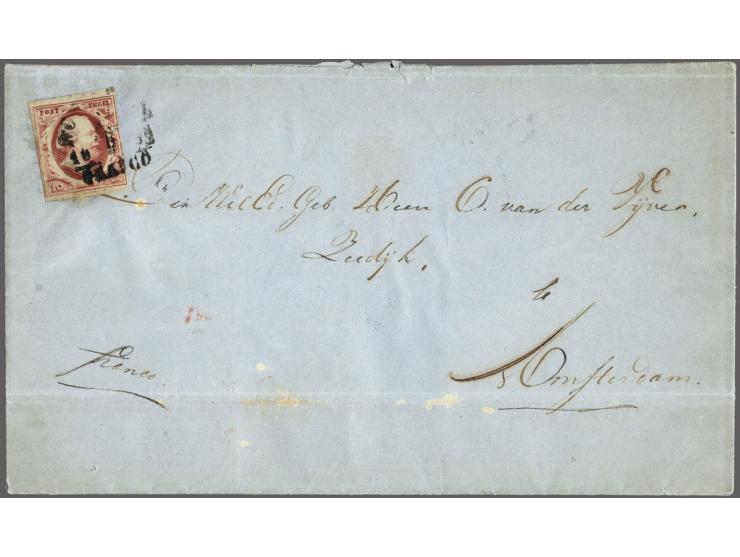 POST ZEGEL
10
FRANCO
Den WelEd. Geb. Heer C. van der Vyver,
Zeedijk,
te
Amsterdam.
franco.